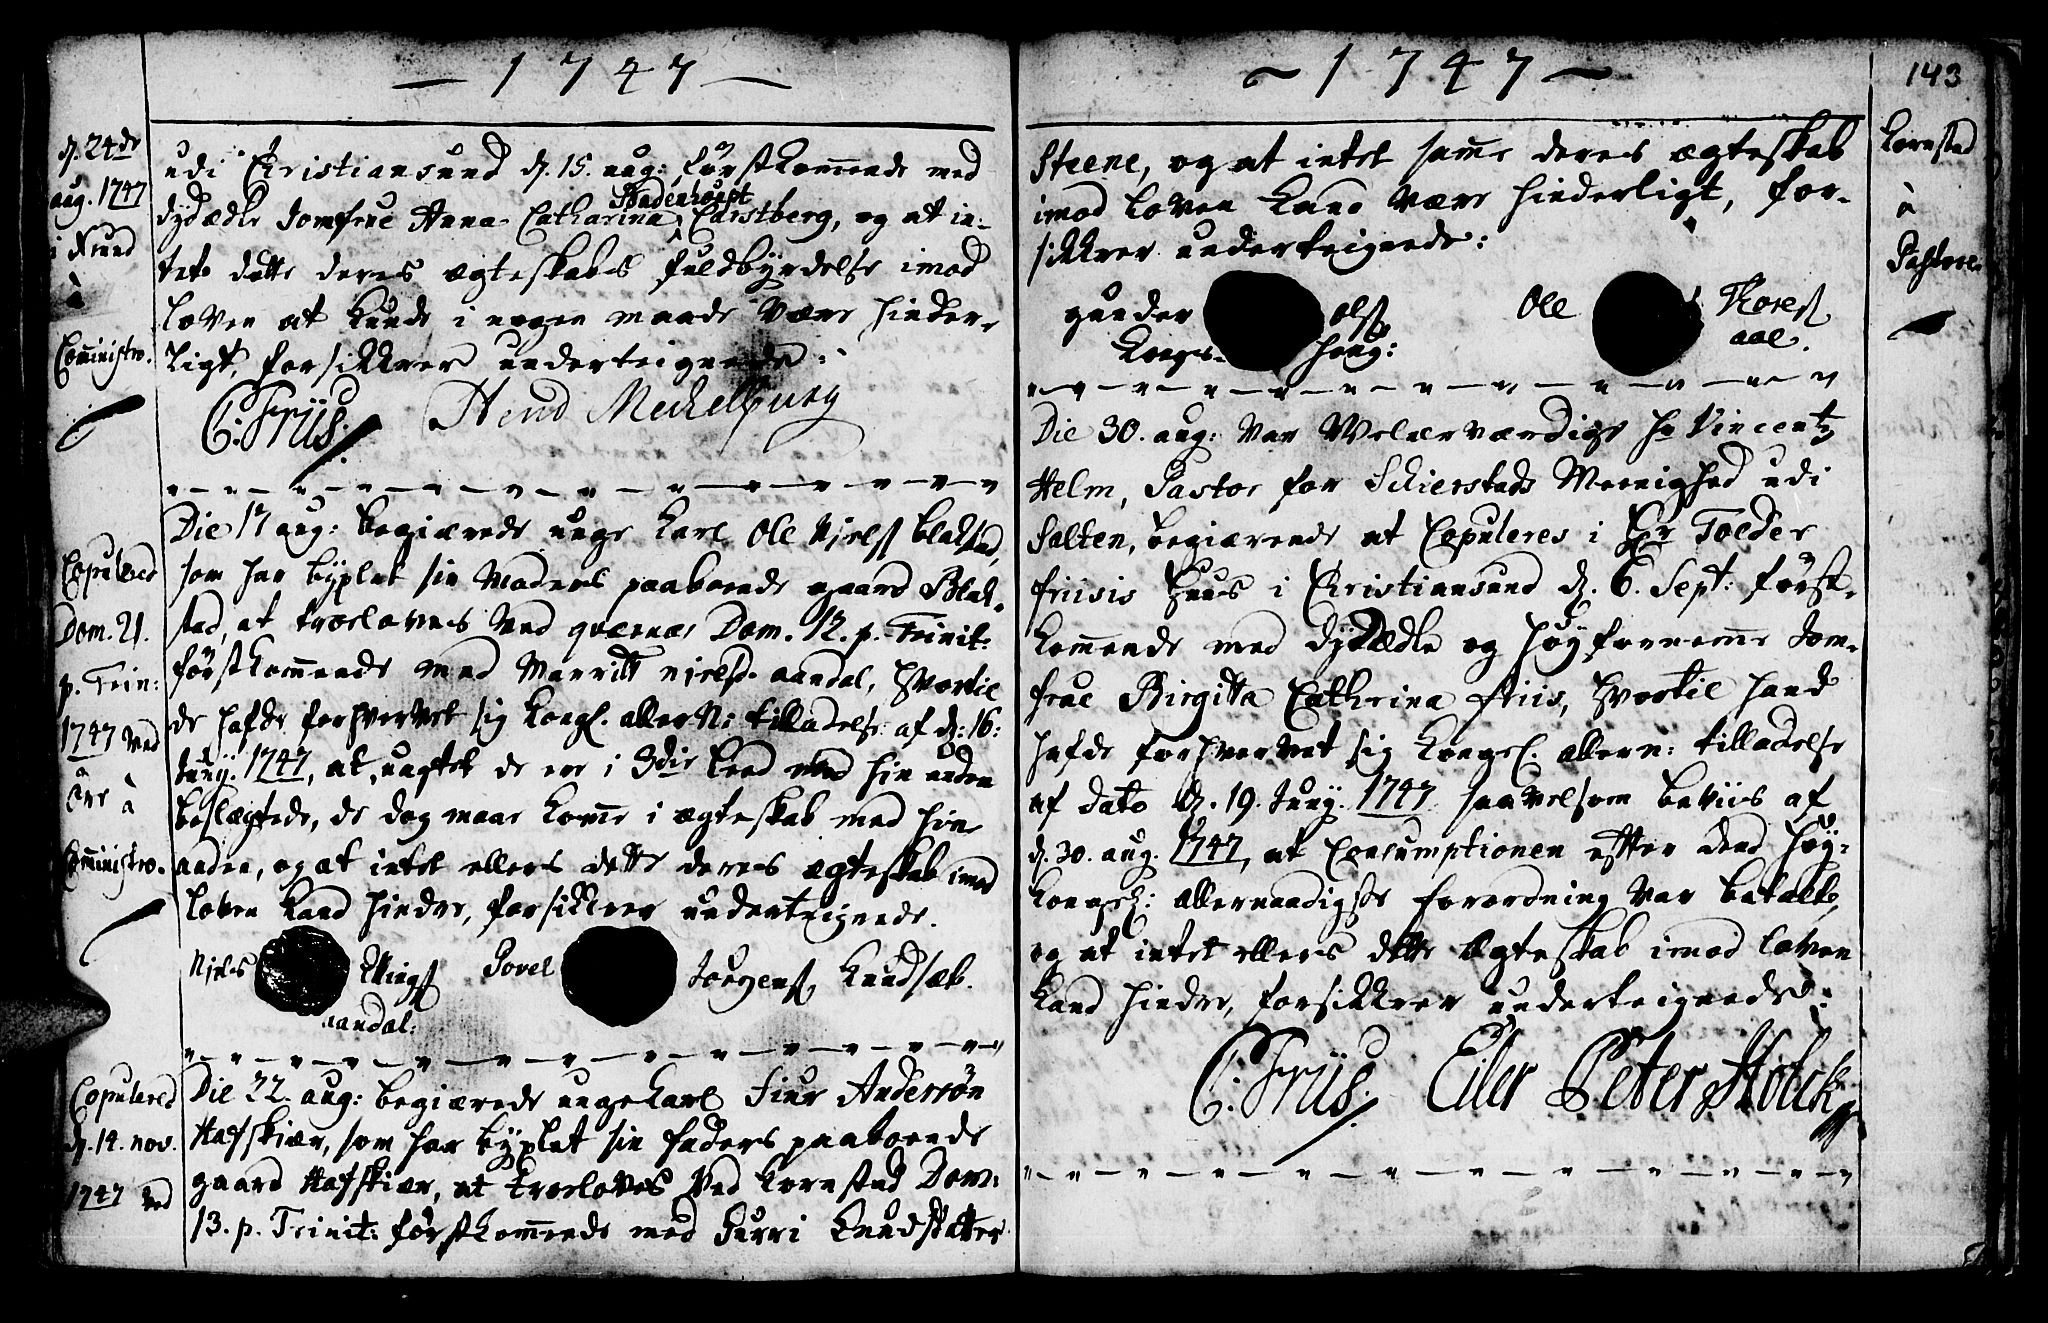 — 1747 —
d. 24de
aug. 1747
i XSund
à
Comministro.
udi Christiansund d. 15. aug: førstkom̅ende med
dydædle Jomfrue Anna Catharina Castberg, og at in-
tet dette deres ægteskabs fuldbyrdelse imod
Loven at kunde i nogen maade være hinder-
ligt, forsikkrer underteignede:
C: Friis. Hend Mechelburg
Die 17 aug: begiærede unge Karl Ole Niels: blakstad,
som har byxlet sin Moders paaboende gaard Blak-
stad, at troeloves ved qværnæs Dom. 12. p. Trinit:
førstkom̅ende med Marritt nielsd. aandal, hvortil
de hafde forhvervet sig Kongl. allern: tilladelse af d: 16:
Juny. 1747, at, uagtet de ere i 3die leed med hin anden
beslægtede, de dog maae kom̅e i ægteskab med hin
anden, og at intet ellers dette deres ægteskab imod
Loven kand hindre, forsikkrer underteignede.
Copulered
Dom. 21.
p. Trin:
1747 ved
Øre à
Comministro.
Niels Ellings: Povel Jørgens: Knudsæt.
aandal:
Copulered
d. 14. nov.
1747 ved
Die 22. aug: begiærede unge Karl Siur Anderssøn
Hafskiær, som har byxlet sin faders paaboende
gaard Hafskiær, at troeloves ved Kornstad Dom:
13. p. Trinit: førstkom̅ende med Gurri Knudsdatter
~ 1747 ~
143
Kornstad
à
Pastore.
Steene, og at intet sam̅e deres ægteskab
imod Loven kand være hinderligt, for-
sikkrer underteignede:
gunder Ols: Ole Thores:
Kongs- houg: aae.
Die 30. aug: var Velærværdige hr Vincentz
Helm, Pastor for Skierstads Meenighed udi
Salten, begiærende at Copuleres i Hr Tolder
friisis Huus i Christiansund d. 6. Sept: først-
kom̅ende med dydædle og høyfornem̅e Jom-
frue Birgitta Cathrina friis, hvortil hand
hafde forhvervet sig Kongl. allern: tilladelse
af dato d. 19. Juny. 1747 saavelsom beviis af
d. 30. aug. 1747, at Consumptionen efter dend høy-
Kongel: allernaadigste forordning var betalt,
og at intet ellers dette ægteskab imod loven
kand hindre, forsikkrer underteignede:
C: Friis. Eiler Peter Holck